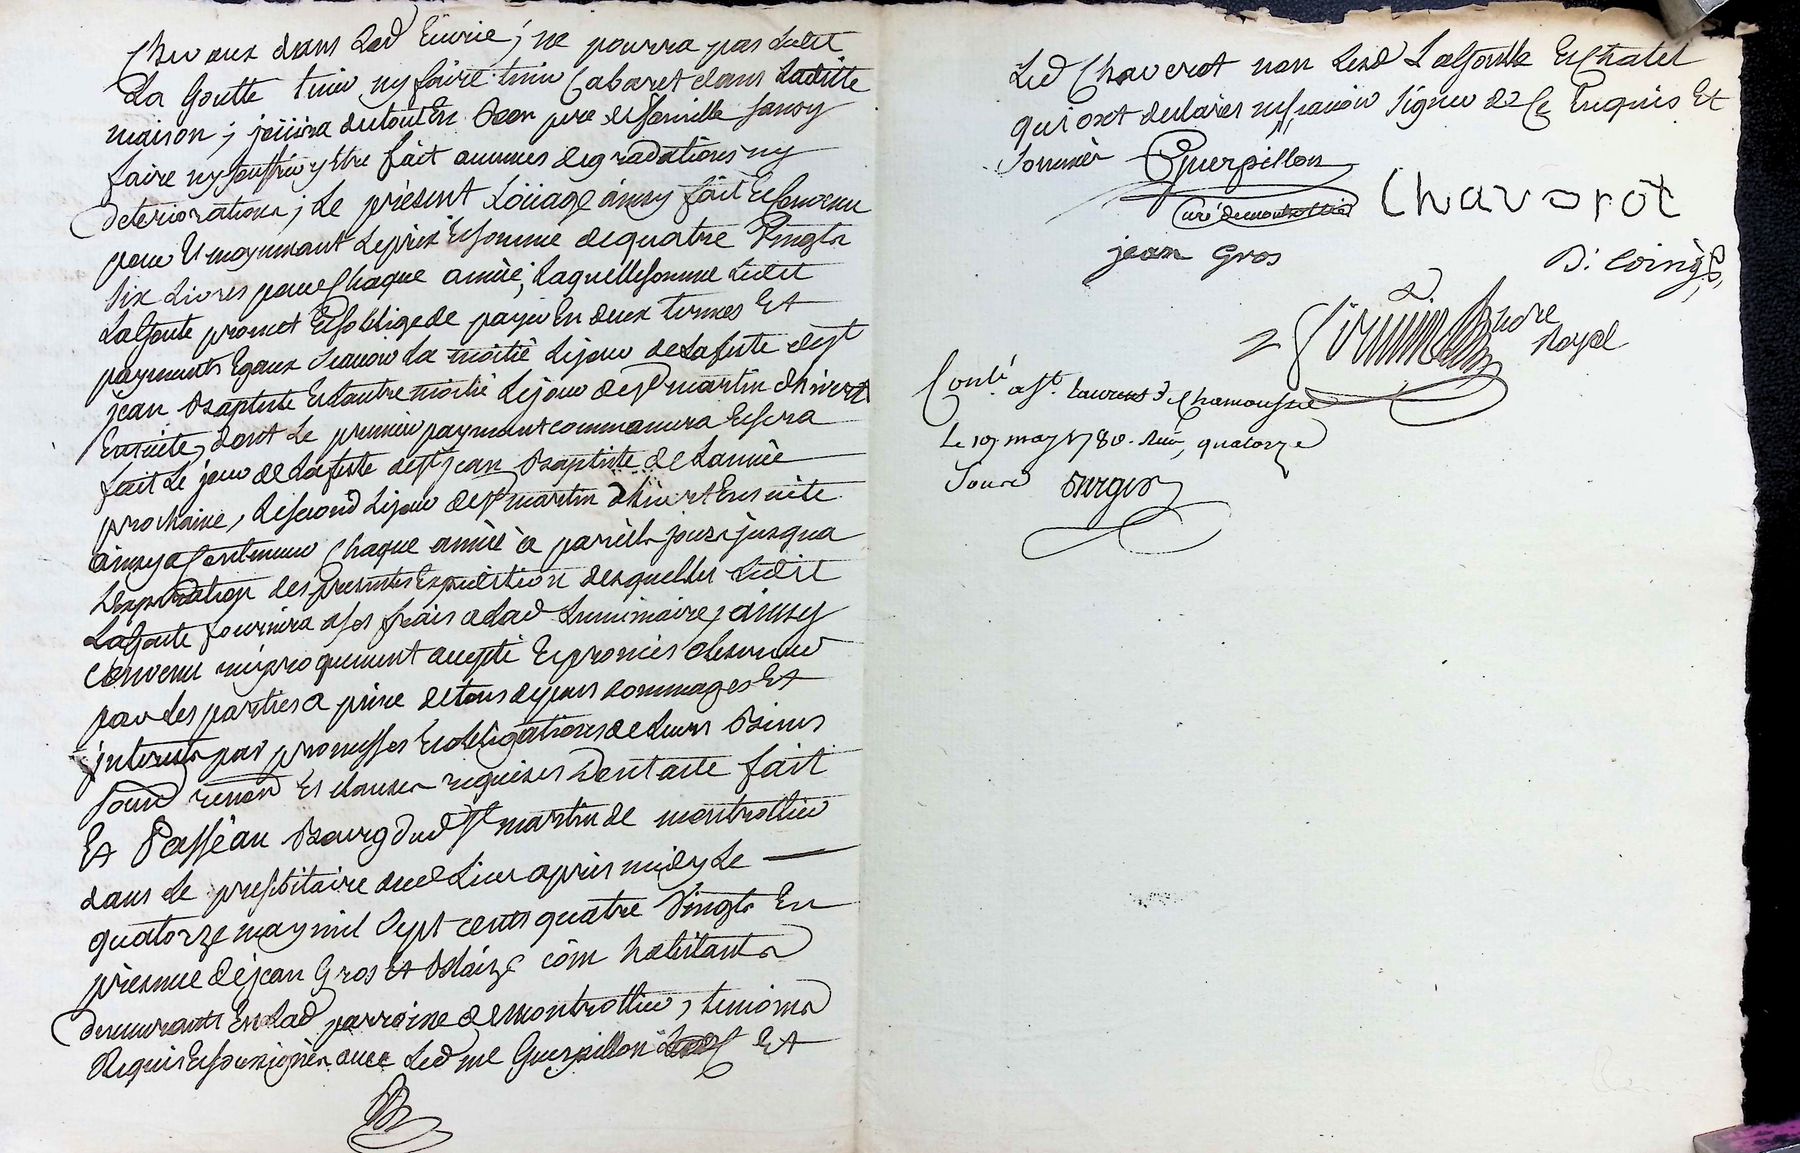 chevaux dans lad Ecurie ; ne pourra pas ledit
La Goutte tenir ny faire tenir Cabaret dans laditte
maison ; joüira du tout En bon pere de famille sans y
faire ny souffrir y Etre fait aucunes degradations ny
deteriorations ; Le présent Loüage ainsy fait et Convenu
pour Et moyennant le prix Et somme de quatre Vingts
six Livres pour Chaque année, laquelle somme ledit
Lagoute promet Et soblige de payer En deux termes Et
payments Egaux scavoir La moitié le jour de la feste de st
jean Baptiste Et Lautre moitié le jour de st martin dhivert
Ensuite, dont Le premier payment commencera Et sera
fait Le jour de la feste de st jean Baptiste de Lannée
prochaine, le second le jour de st martin dhivert Ensuite
ainsy a Continuer Chaque année a pareils jours jusqua
Lexpiration des presentes Expedition desquelles ledit
Lagoute fournira a ses frais a lad Luminaire, ainsy
Convenu reciproquement accepté Et promis observer
par les parties a peine de tous depens dommages Et
jnterests par promesses Et obligations de leurs Biens
soum renon Et clauses requises Dont acte fait
Et Passé au Bourg dud st martin de montrottier
dans le presbitaire dud Lieu apres midy Le
quatorze may mil sept cents quatre Vingts En
présence de jean Gros Et Blaize Coin habitants
demeurants En lad parroisse de montrottier, temoins
Requis Et soussignés avec led me Guerpillon Et
Led Chaverot non lesd Lagoutte Et Chatel
qui ont declarés ne scavoir signer de Ce Enquis Et
sommés Guerpillon
Curé de montrottier Chavorot
jean Gros B. Coing
Nore
Royal
Conlé a st. Laurent de Chamousset
Le 19 may 1780. Reçu, quatorze
sous